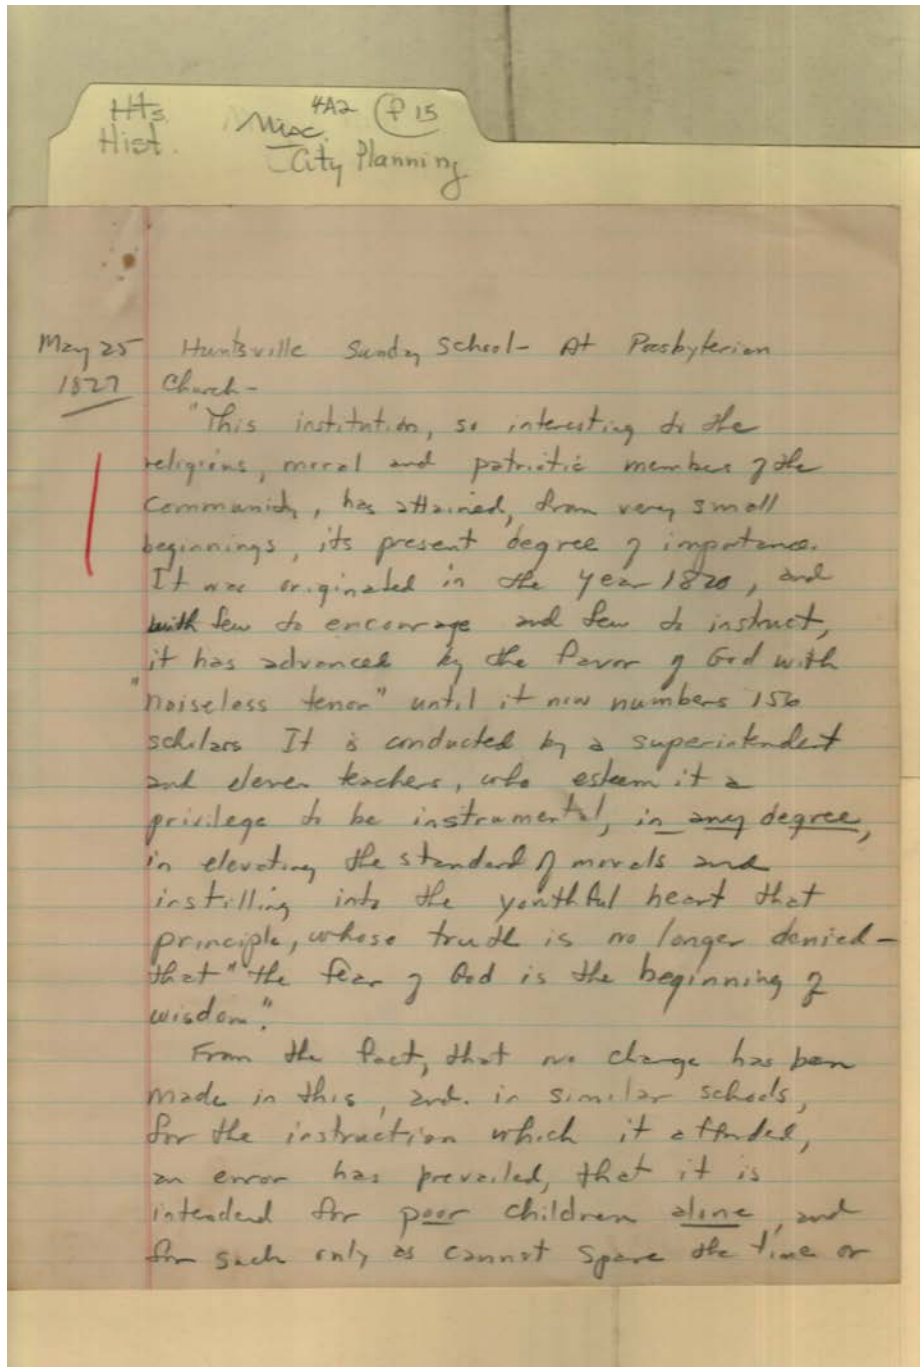 Hts.
Hist.
4A2 (P 15
Misc.
City Planning
May 25 Huntsville Sunday School - At Presbyterian
1827 Church -
"This institution, so interesting to the
religious, moral and patriotic member of the
Community, has attained, from very small
beginnings, its present degree of importance.
It was originated in the year 1820, and
with few to encourage and few to instruct,
it has advanced by the favor of God with
"noiseless tenor" until it now numbers 150
scholars It is conducted by a superintendent
and eleven teachers, who esteem it a
privilege to be instrumental, in any degree,
in elevating the standard of morals and
instilling into the youthful heart that
principle, whose truth is no longer denied -
that "the fear of God is the beginning of
wisdom".
From the fact, that no charge has been
made in this, and. in similar schools,
for the instruction which it afforded,
an error has prevailed, that it is
intended for poor children alone, and
for such only as cannot spare the time or